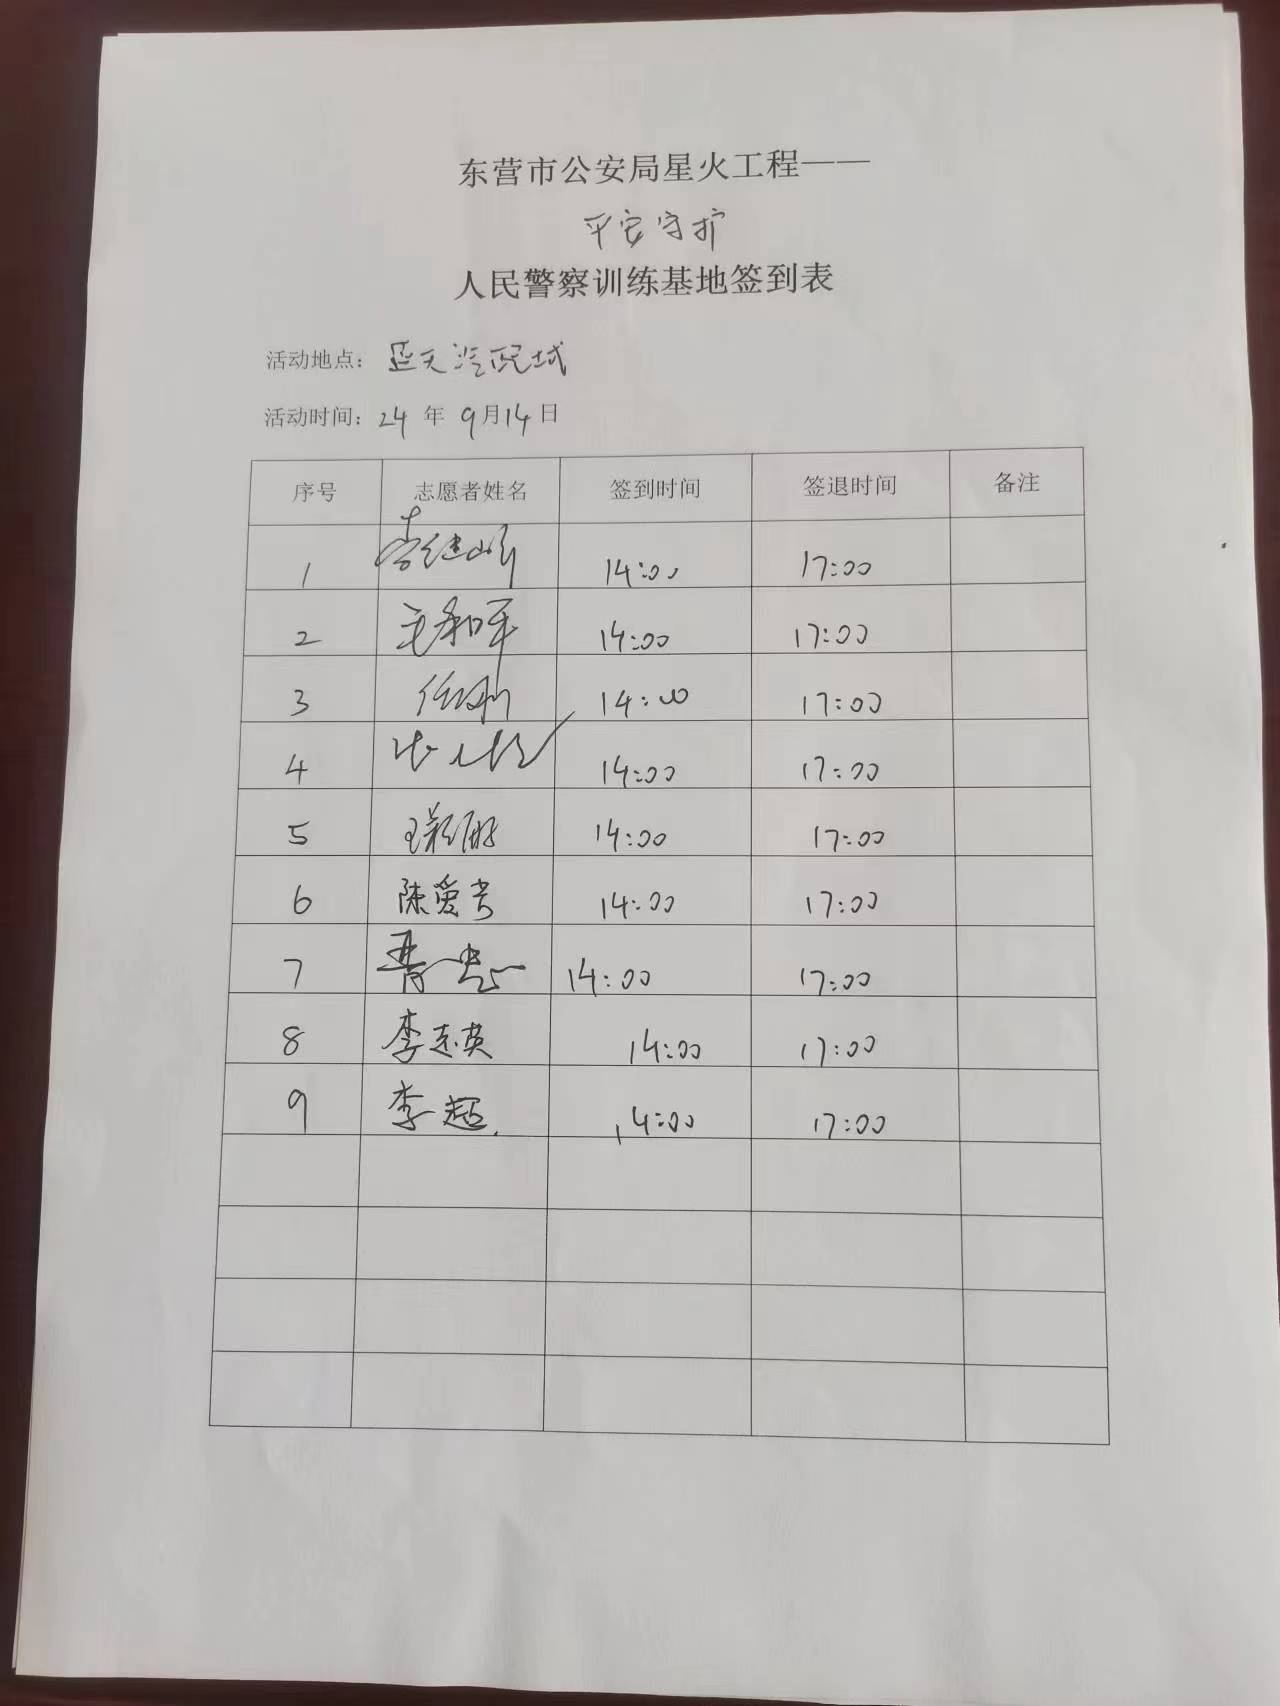 东营市公安局星火工程——
平安守护
人民警察训练基地签到表
活动地点： 蓝天汽配城
活动时间：24 年 9月14日
序号 志愿者姓名 签到时间 签退时间 备注
1 14:00 17:00
2 毛和平 14:00 17:00
3 14:00 17:00
4 14:00 17:00
5 14:00 17:00
6 陈爱芳 14:00 17:00
7 14:00 17:00
8 李志英 14:00 17:00
9 李超 14:00 17:00